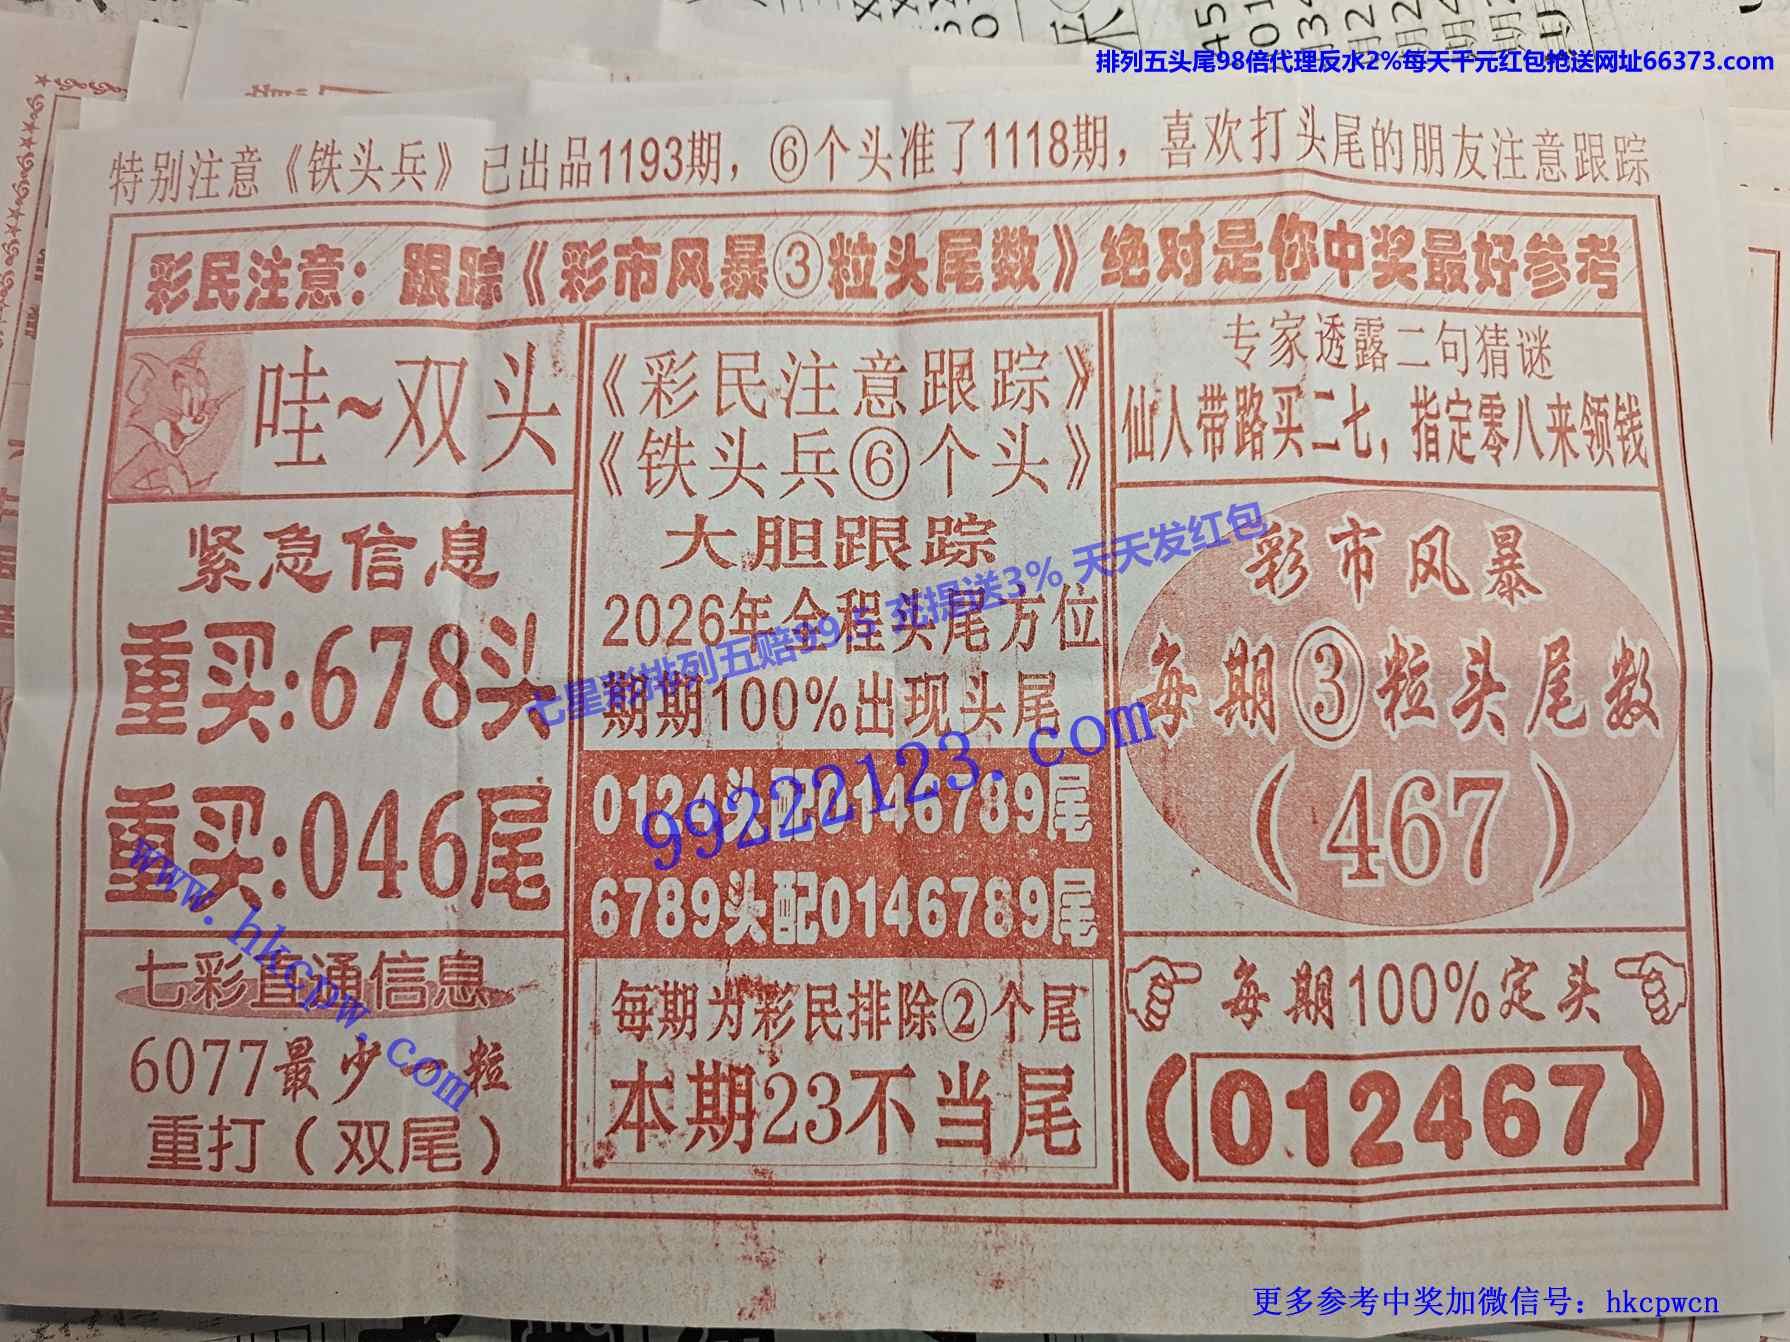 排列五头尾98倍代理反水2%每天千元红包抢送网址66373.com
特别注意《铁头兵》已出品1193期，⑥个头准了1118期，喜欢打头尾的朋友注意跟踪
彩民注意：跟踪《彩市风暴③粒头尾数》绝对是你中奖最好参考
哇~双头
紧急信息
重买:678头
重买:046尾
七彩直通信息
6077最少一粒
重打（双尾）
《彩民注意跟踪》
《铁头兵⑥个头》
大胆跟踪
2026年全程头尾万位
期期100%出现头尾
0124头配0146789尾
6789头配0146789尾
每期为彩民排除②个尾
本期23不当尾
专家透露二句猜谜
仙人带路买二七，指定零八来领钱
彩市风暴
每期③粒头尾数
（467）
每期100%定头
（012467）
七星彩排列五赔99.5 充提送3% 天天发红包
99222123.com
www.hkcpw.com
更多参考中奖加微信号：hkcpwcn